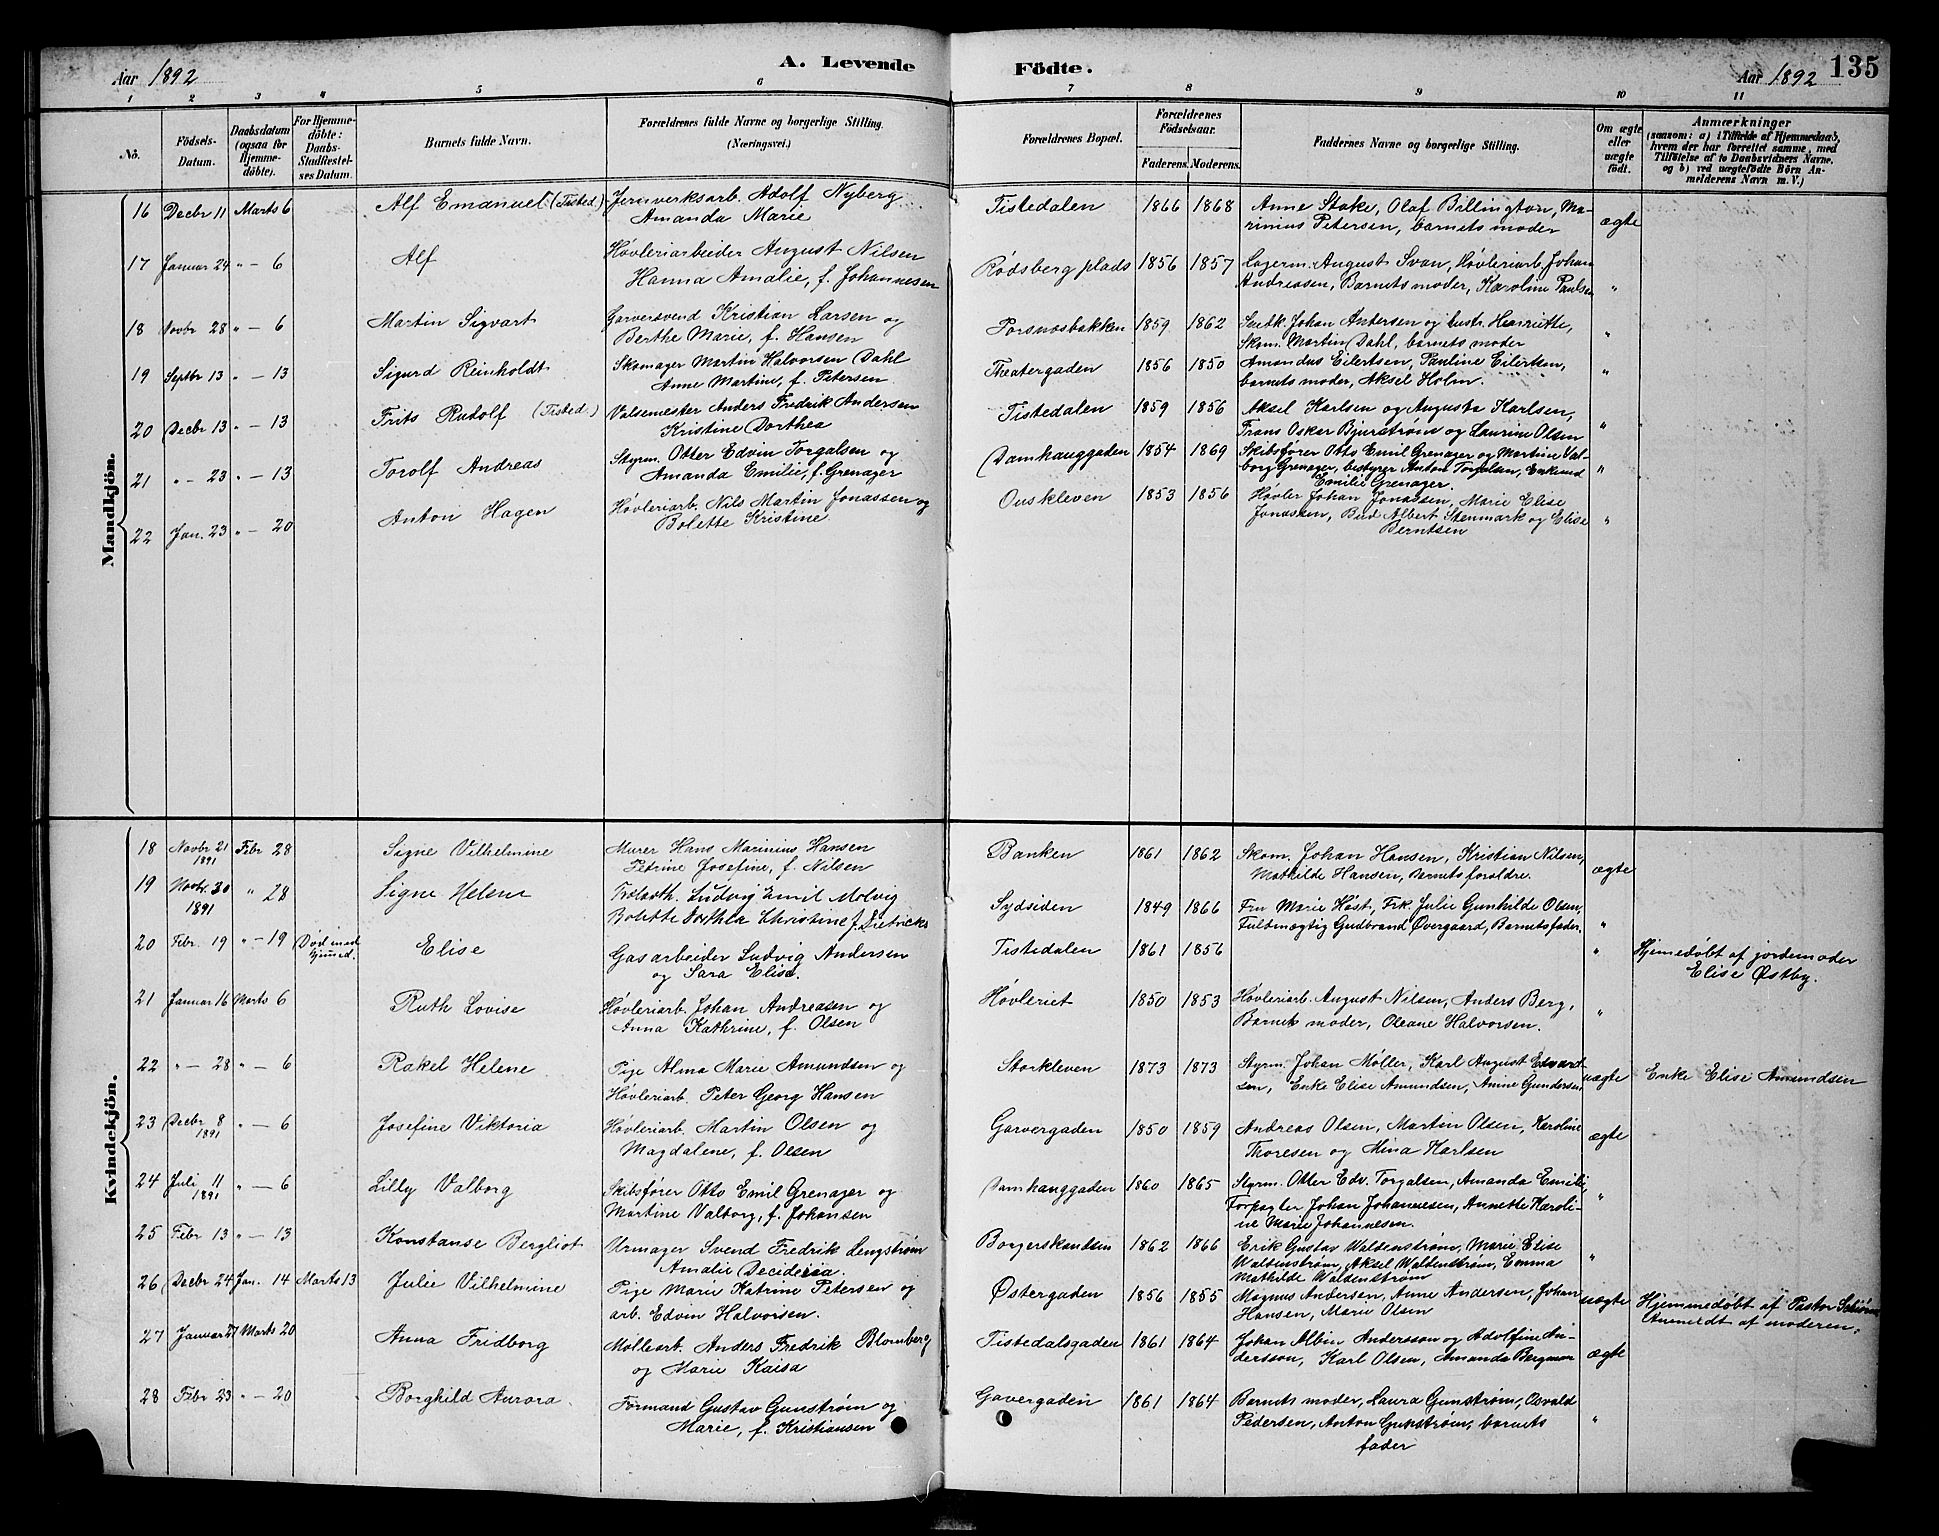 Aar 1892
A. Levende Födte.
Aar 1892
135
1 2 3 4 5 6 7 8 9 10 11
No.
Födsels-Datum.
Daabsdatum (ogsaa for Hjemme-döbte).
For Hjemme-döbte: Daabs-Stadfæstel-ses Datum.
Barnets fulde Navn.
Forældrenes fulde Navne og borgerlige Stilling.
(Næringsvei.)
Forældrenes Bopæl.
Forældrenes Födselsaar.
Faderens. Moderens.
Faddernes Navne og borgerlige Stilling.
Om ægte eller uægte födt.
Anmærkninger
(saasom: a) i Tilfælde af Hjemmedaab,
hvem der har forrettet samme, med
Tilföielse af to Daabsvidners Navne,
og b) ved uægtefödte Börn An-
melderens Navn m. V.)
Mandkjön.
16 Decbr 11 Marts 6 Alf Emanuel (Tisted.) Jernverksarb. Adolf Nyberg Tistedalen 1866 1868 Anne Stoke, Olaf Billington, Ma-
Amanda Marie rinius Petersen, barnets moder ægte
17 Januar 24 " — 6 Alf Høvleriarbeider August Nilsen Rødsberg plads 1856 1857 Lagerm. August Svan, Høvleriarb. Johan
Hanna Amalie, f. Johannesen Andreasen, Barnets moder, Karoline Paulsen "
18 Novbr 28 " — 6 Martin Sigvart Garversvend Kristian Larsen og Porsnesbakken 1859 1862 Johan Andersen og hustr. Henriette,
Berthe Marie, f. Hansen Skom. Martin Dahl, barnets moder "
19 Septbr 13 " — 13 Sigurd Reinholdt Skomager Martin Halvorsen Dahl Theatergaden 1856 1850 Amandus Eilertsen, Pauline Eilertsen,
Anne Martine, f. Petersen barnets moder, Aksel Holm. "
20 Decbr 13 " — 13 Frits Rudolf (Tisted.) Valsemester Anders Fredrik Andersen Tistedalen 1859 1856 Aksel Karlsen og Augusta Karlsen,
Kristine Dorthea Frans Oskar Bjurstrøm og Laurine Olsen "
21 " — 23 " — 13 Torolf Andreas Styrm. Otter Edvin Torgalsen og Damhauggaden 1854 1869 Skibsfører Otto Emil Grenager og Martine Val-
Amanda Emilie, f. Grenager borg Grenager, bestyrer Anton Torgalsen, Enkemd "
Emilie Grenager.
22 Jan. 23 " — 20 Anton Hagen Høvleriarb. Nils Martin Jonassen og Ouskleven 1853 1856 Høvler Johan Jonassen, Marie Elise
Bolette Kristine Jonassen, Bud Albert Stenmark og Elise "
Berntsen
Kvindekjön.
18 Novbr 21 1891 Febr 28 Signe Vilhelmine Murer Hans Marinius Hansen Banken 1861 1862 Skom. Johan Hansen, Kristian Nilsen,
Petrine Josefine, f. Nilsen Mathilde Hansen, Barnets forældre. ægte
19 Novbr. 30 1891 " 28 Signe Helene Ludvig Emil Molvig Sydsiden 1849 1866 Fru Marie Høst, Frk. Julie Gunhilde Olsen,
Bolette Dorthea Christine f. Dietrichs Fuldmægtig Gudbrand Øvergaard, Barnets fader. "
20 Febr. 19 " — 19 Død med hjemmed. Elise Gasarbeider Ludvig Andersen Tistedalen 1861 1856 " Hjemedøbt af jordemoder
og Sara Elise. Elise Østby.
21 Januar 16 Marts 6 Ruth Lovise Høvleriarb. Johan Andreasen og Høvleriet 1850 1853 Høvleriarb. August Nilsen, Anders Berg,
Anna Kathrine, f. Olsen Barnets moder, Oleane Halvorsen. "
22 " — 28 " — 6 Rakel Helene Pige Alma Marie Amundsen og Storkleven 1873 1873 Styrm. Johan Møller, Karl August Edvard-
Høvleriarb. Peter Georg Hansen sen, Enke Elise Amundsen, Anine Gundersen uægte Enke Elise Amundsen
23 Decbr 8 1891 " — 6 Josefine Viktoria Høvleriarb. Martin Olsen og Garvergaden 1850 1859 Andreas Olsen, Martin Olsen, Karoline
Magdalene, f. Olsen Thoresen og Mina Karlsen ægte
24 Juli 11 1891 " — 6 Lilly Valborg Skibsfører Otto Emil Grenager og Damhauggaden 1860 1865 Styrm. Otter Edv. Torgalsen, Amanda Emili,
Martine Valborg, f. Johansen Forpagter Johan Johannesen, Annette Karoli- "
ne Marie Johannesen.
25 Febr 13 " — 13 Konstanse Bergliot Urmager Svend Fredrik Lengstrøm Borgerskandsen 1862 1866 Erik Gustav Waldenstrøm, Marie Elise
Amalie Decideria. Waldenstrøm, Aksel Waldenstrøm, Emma "
Mathilde Waldenstrøm
26 Decbr 24 Jan. 14 Marts 13 Julie Vilhelmine Pige Marie Katrine Petersen og Østergaden 1856 1855 Magnus Andersen, Anne Andersen, Johan
arb. Edvin Halvorsen. Hansen, Marie Olsen uægte Hjemmedøbt af Pastor
Anmeldt af moderen.
27 Januar 27 Marts 20 Anna Fridborg Møllearb. Anders Fredrik Blomberg Tistedalsgaden 1861 1864 Johan Albin Andersson og Adolfine An-
og Marie Kaisa dersson, Karl Olsen, Amanda Bergman ægte
28 Febr 23 " — 20 Borghild Aurora. Formand Gustav Gunstrøm og Gavergaden 1861 1864 Barnets moder, Laura Gunstrøm, Osvald
Marie, f. Kristiansen Pedersen, Anton Gunstrøm, barnets "
fader